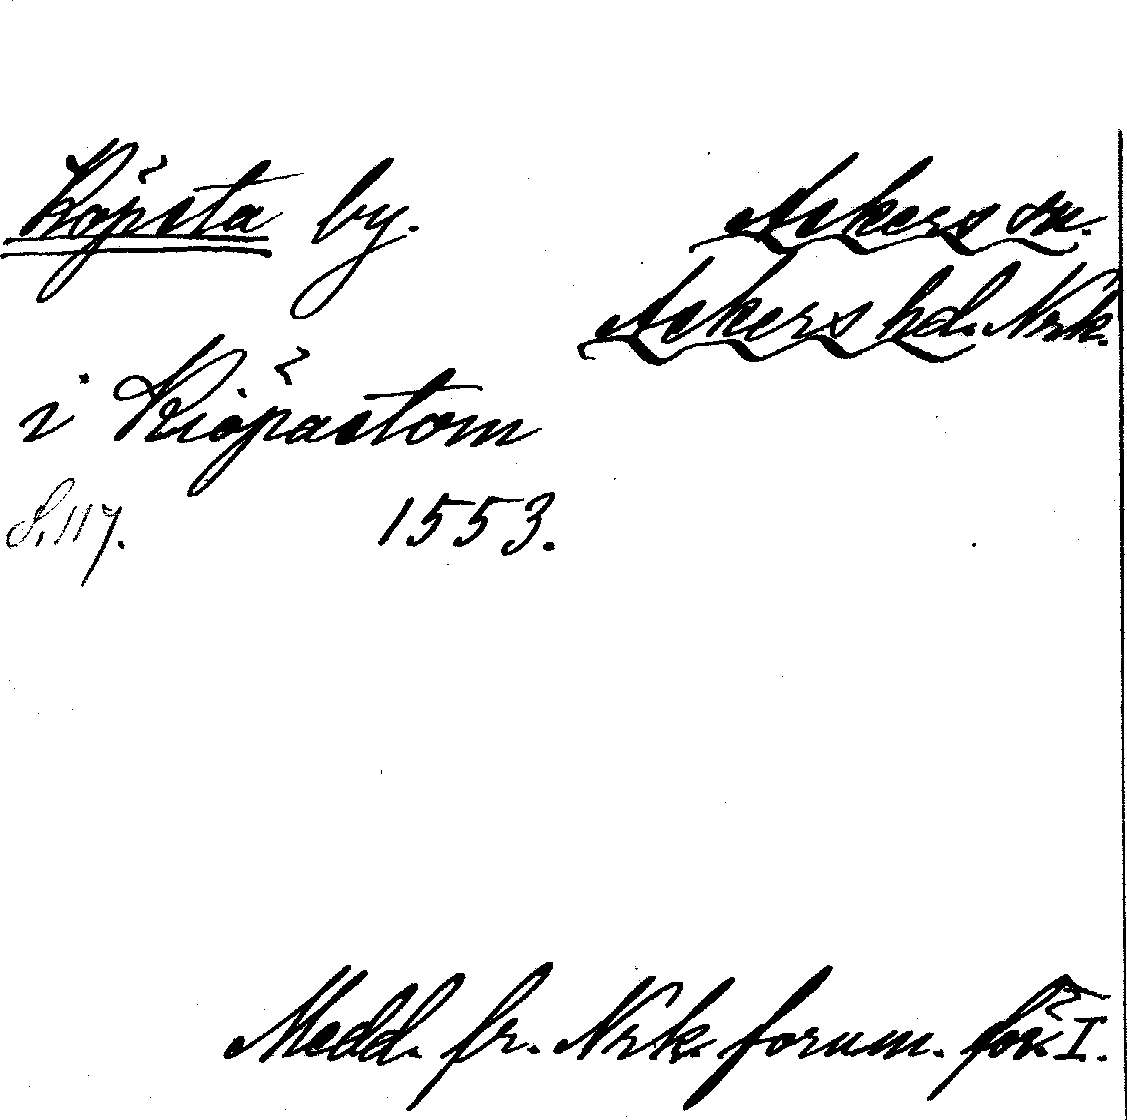 Köpsta by.
Askers sn.
Askers hd. Nrk.
i Kiöpastom
S. 117. 1553.
Medd. fr. Nrk. fornm. för. I.